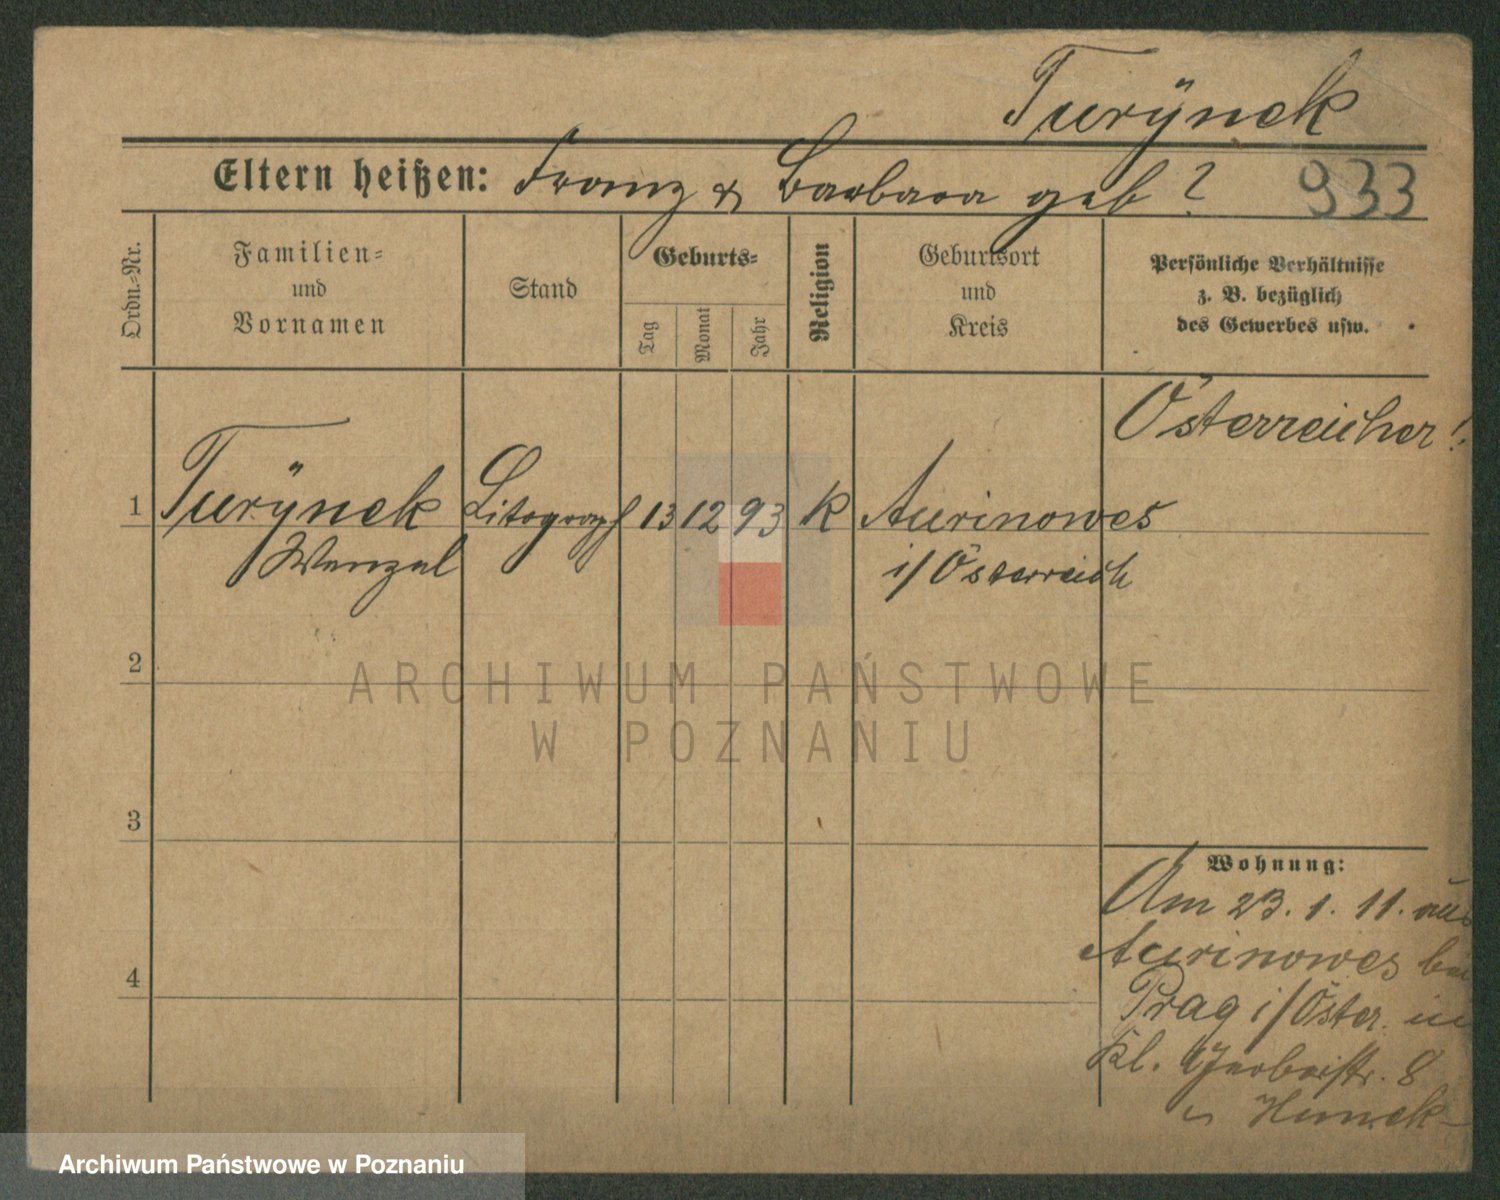 Turÿnek
Eltern heißen: Franz & Barbara geb ?
933
Ordn.-Nr.
Familien-
und
Vornamen
Stand
Geburts-
Tag
Monat
Jahr
Religion
Geburtsort
und
Kreis
Persönliche Verhältnisse
z. B. bezüglich
des Gewerbes usw.
Österreicher!
1 Turÿnek Litograph 13 12 93 K Aurinowes
Wenzel i/Österreich
2
ARCHIWUM PAŃSTWOWE
W POZNANIU
3
Wohnung:
Am 23. 1. 11. aus
Aurinowes bei
4
Prag i/Öster. in
Kl. Gerberstr. 8
Archiwum Państwowe w Poznaniu